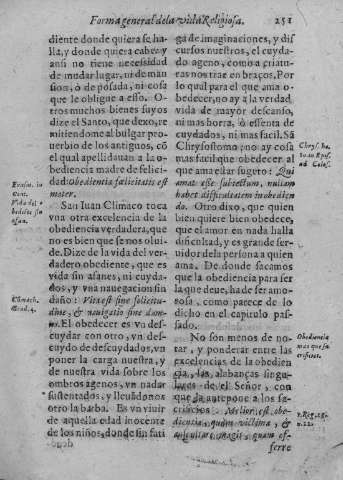 Forma general de la vida Religiosa. 251
diente donde quiera se ha-
lla, y donde quiera cabe: y
ansi no tiene necessidad
de mudar lugar, ni de man
sion, ò de posada, ni cosa
que le obligue a esso. O-
tros muchos bienes suyos
dize el Santo, que dexo, re
mitiendome al bulgar pro-
uerbio de los antiguos, cõ
el qual apellidauan a la o-
bediencia madre de felici-
dad: Obedientia fælicitatis est
mater.
San Iuan Climaco toca
vna otra excelencia de la
obediencia verdadera, que
no es bien que se nos olui-
de. Dize de la vida del ver-
dadero obediente, que es
vida sin afanes, ni cuyda-
dos, y vna nauegacion sin
daño: Vita est sine solicitu-
dine, & nauigatio sine dam-
no. El obedecer es vn des-
cuydar con otro, vn des-
cuydo de descuydados, vn
poner la carga nuestra, y
de nuestra vida sobre los
ombros agenos, vn nadar
sustentados, y lleuãdonos
otro la barba. Es vn viuir
de aquella edad inocente
de los niños, donde sin fati
ga de imaginaciones, y dis
cursos nuestros, el cuyda-
do ageno, como a criatu-
ras nos trae en braços. Por
lo qual para el que ama o-
bedecer, no ay a la verdad
vida de mayor descanso,
ni mas horra, ò essenta de
cuydados, ni mas facil. Sã
Chrysostomo, no ay cosa
mas facil que obedecer al
que ama estar sugeto: Qui
amat esse subiectum, nullam
habet difficultatem in obedien-
do. Otro dixo, que quien
bien quiere bien obedece,
que el amor en nada halla
dificultad, y es grande ser-
uidor de la persona a quien
ama. De donde sacamos
que la obediencia para ser
la que deue, ha de ser amo-
rosa, como parece de lo
dicho en el capitulo pas-
sado.
No son menos de no-
tar, y ponderar entre las
excelencias de la obedien
cia, las alabanças singu-
lares de el Señor, con
que la antepone a los sa-
crificios. Melior est obe-
dientia, quam victima, &
auscultare magis, quam of-
ferre
Vida del o-
Climach.
Grad. 4.
Chrys. ho.
ad Colos.
Obediencia
mas que sa-
crificios.
1. Reg. 15.
n. 22.